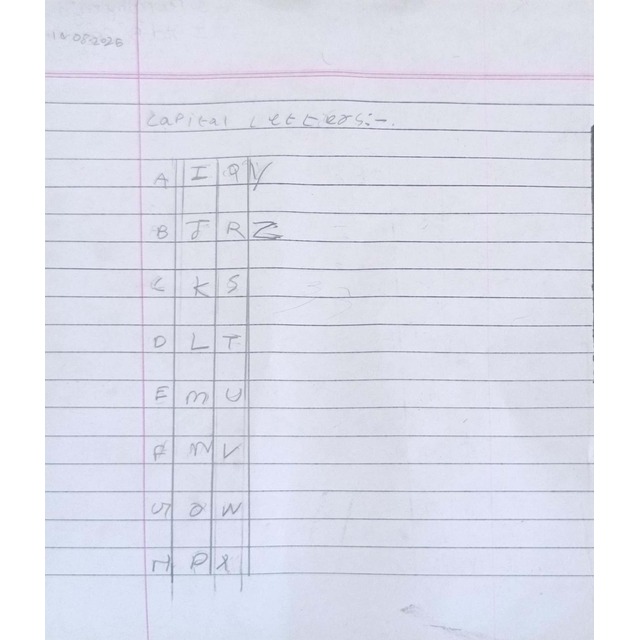 Capital Letters:-
A I Q Y
B J R Z
C K S
D L T
E M U
F N V
G O W
H P X